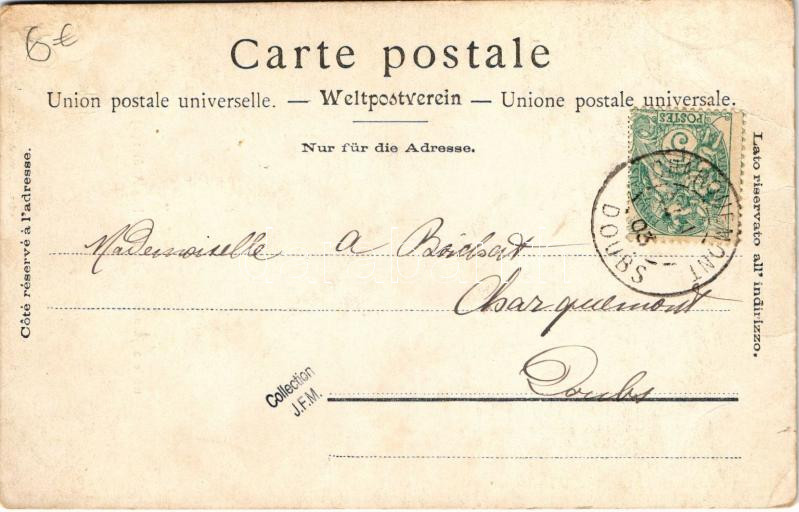 6€
Carte postale
Union postale universelle. — Weltpostverein — Unione postale universale.
Nur für die Adresse.
Côté réservé à l'adresse.
Lato riservato all' indirizzo.
POSTES
03
DOUBS
Mademoiselle A Boichat
Charquemont
Doubs
Collection
J.F.M.